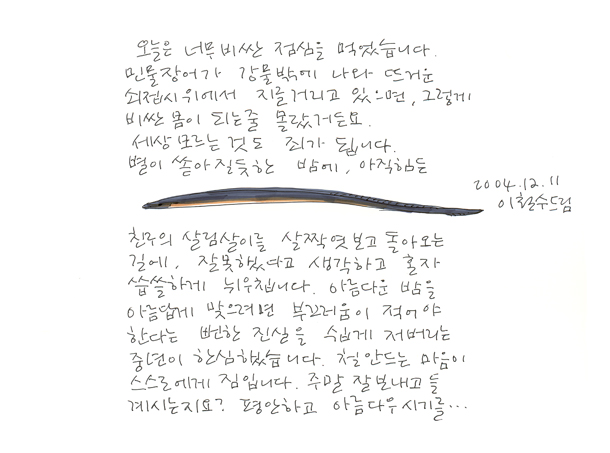 오늘은 너무 비싼 점심을 먹었습니다.
민물장어가 강물밖에 나와 뜨거운
쇠젭시위에서 지글거리고 있으면, 그렇게
비싼 몸이 되는줄 몰랐거든요.
세상 모르는 것도 죄가 됩니다.
별이 쏟아질듯한 밤에, 아직 힘든
2004.12.11
이철수드림
친구의 살림살이를 살짝 엿보고 돌아오는
길에, 잘못했다고 생각하고 혼자
씁쓸하게 뉘우칩니다. 아름다운 밤을
아름답게 맞으려면 부끄러움이 적어야
한다는 뻔한 진실을 쉽게 저버리는
중년이 한심했습니다. 철 안드는 마음이
스스로에게 짐입니다. 주말 잘 보내고들
계시는지요? 평안하고 아름다우시기를...